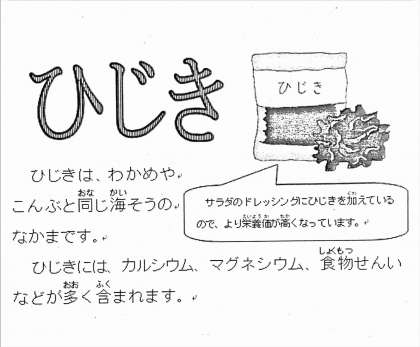 ひじき
ひじき
ひじきは、わかめや
こんぶと同じ海そうの
なかまです。
サラダのドレッシングにひじきを加えている
ので、より栄養価が高くなっています。
ひじきには、カルシウム、マグネシウム、食物せんい
などが多く含まれます。